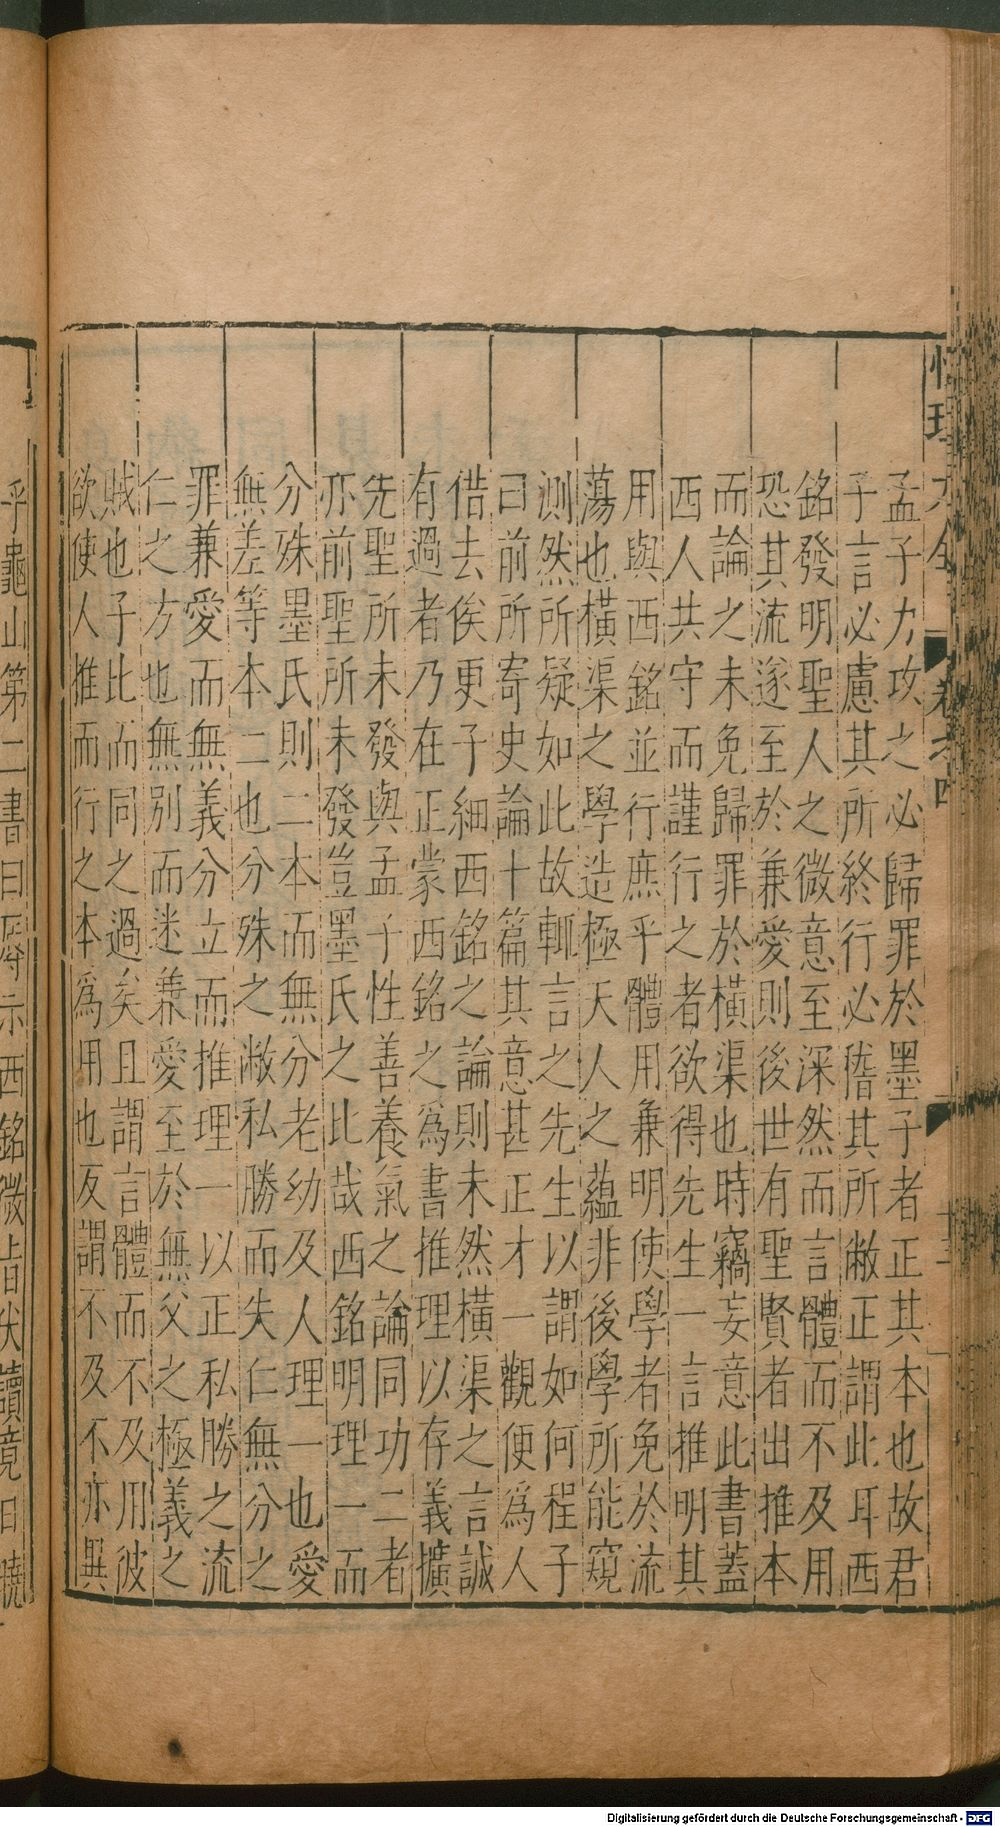 孟子力攻之必歸罪於墨子者正其本也故君
子言必慮其所終行必稽其所敝正謂此耳西
銘發明聖人之微意至深然而言體而不及用
恐其流遂至於兼愛則後世有聖賢者出推本
而論之未免歸罪於橫渠也時竊妄意此書蓋
西人共守而謹行之者欲得先生一言推明其
用與西銘並行庶乎體用兼明使學者免於流
蕩也橫渠之學造極天人之蘊非後學所能窺
測然所疑如此故輒言之先生以謂如何程子
曰前所寄史論十篇其意甚正才一觀便為人
借去俟更子細西銘之論則未然橫渠之言誠
有過者乃在正蒙西銘之為書推理以存義擴
先聖所未發與孟子性善養氣之論同功二者
亦前聖所未發豈墨氏之比哉西銘明理一而
分殊墨氏則二本而無分老幼及人理一也愛
無差等本二也分殊之敝私勝而失仁無分之
罪兼愛而無義分立而推理一以正私勝之流
仁之方也無別而迷兼愛至於無父之極義之
賊也子比而同之過矣且謂言體而不及用彼
欲使人推而行之本為用也反謂不及不亦異
乎龜山第二書曰辱示西銘微旨伏讀竟日曉
性理大全
卷之四
Digitalisierung gefördert durch die Deutsche Forschungsgemeinschaft - DFG